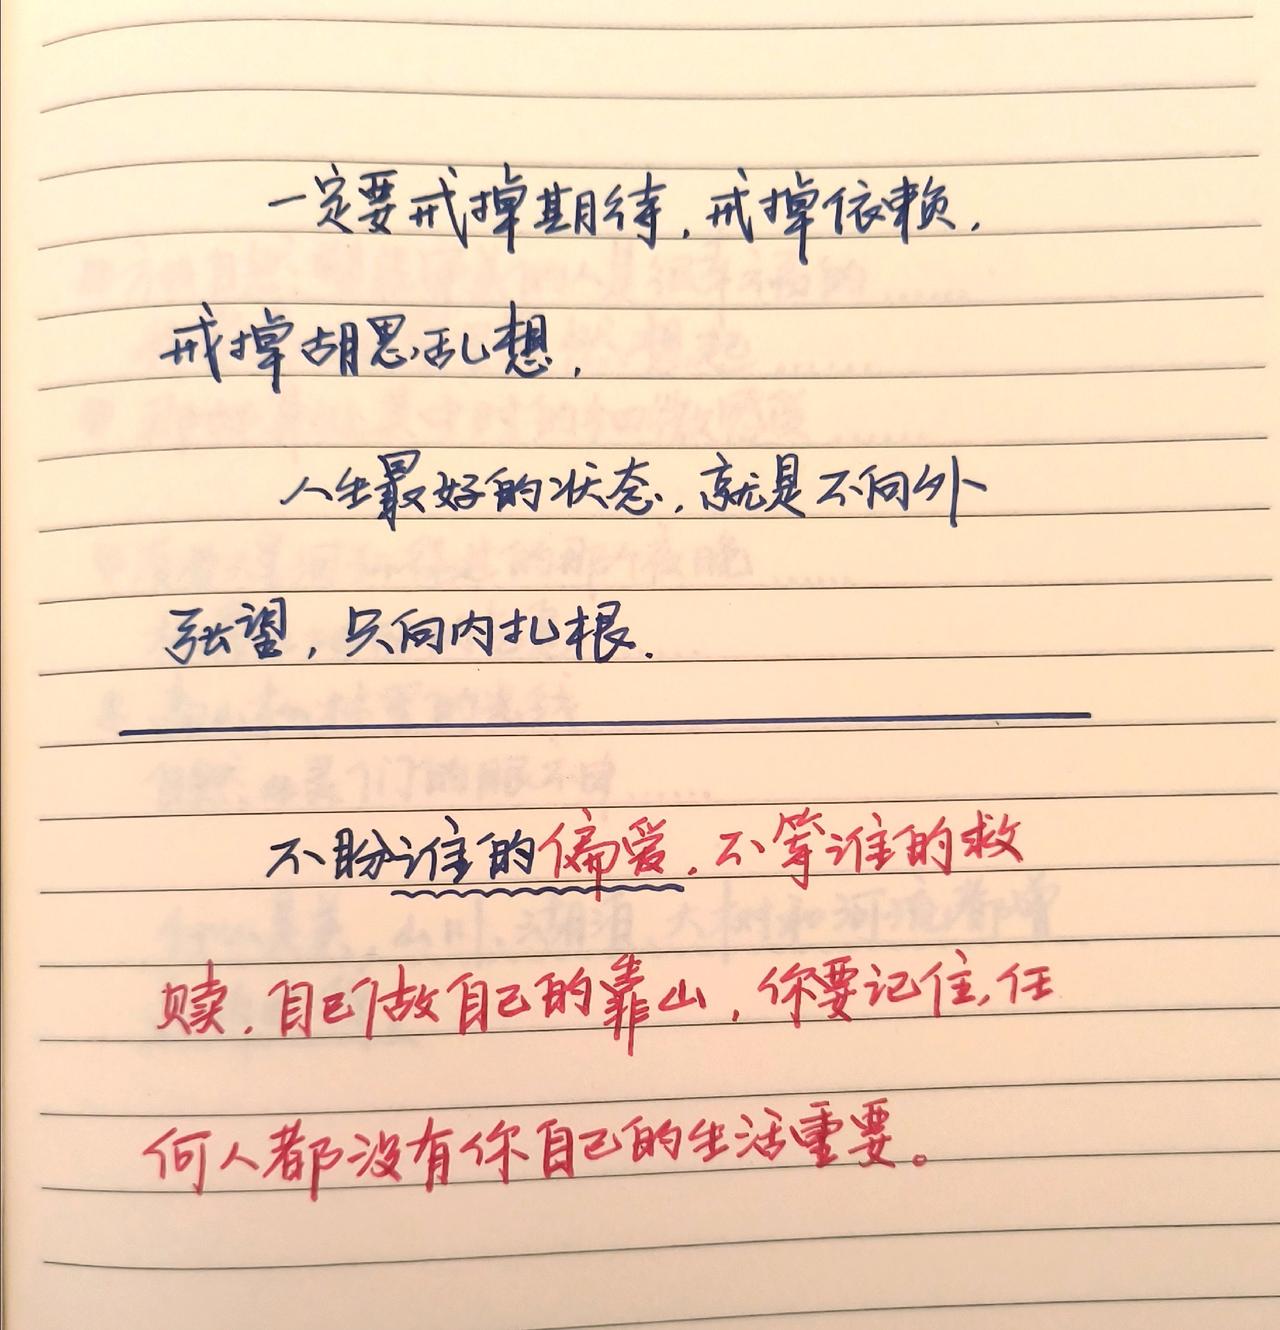 一定要戒掉期待,戒掉依赖,
戒掉胡思乱想.
人生最好的状态,就是不向外
张望,只向内扎根.
不盼谁的偏爱,不等谁的救
赎,自己做自己的靠山,你要记住,任
何人都没有你自己的生活重要。